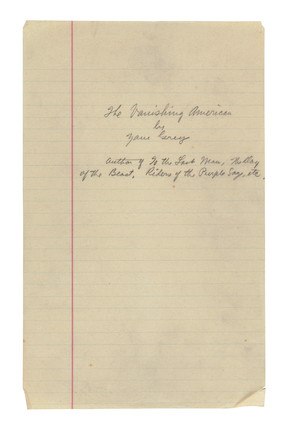 The Vanishing American
by
Zane Grey
Author of To the Last Man, The Day
of the Beast, Riders of the Purple Sage, etc.